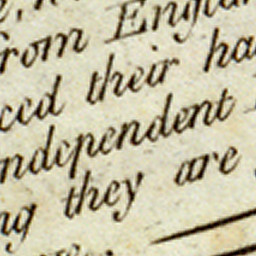 from Englan
ced their ha
ndependent
ng they are